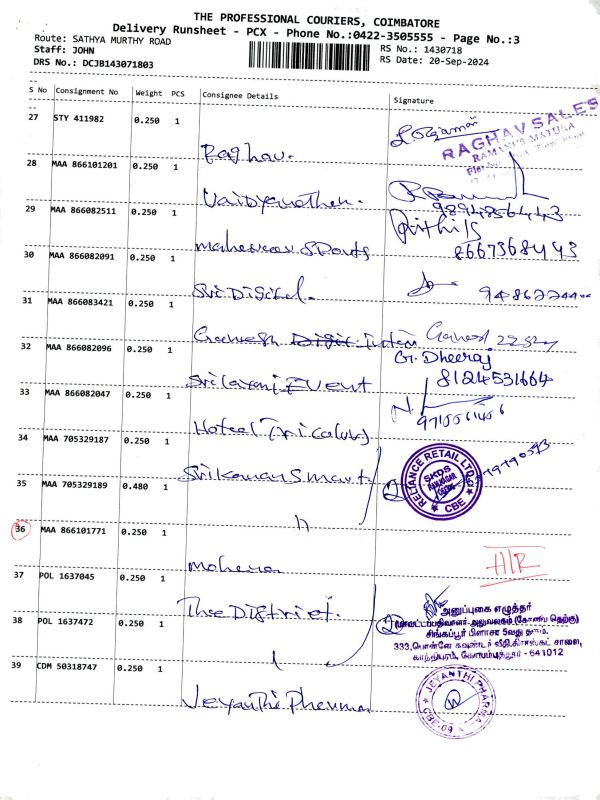 THE PROFESSIONAL COURIERS, COIMBATORE
Delivery Runsheet - PCX - Phone No.:0422-3505555 - Page No.:3
Route: SATHYA MURTHY ROAD
RS No.: 1430718
Staff: JOHN
RS Date: 20-Sep-2024
DRS No.: DCJB143071803
S No Consignment No Weight PCS Consignee Details Signature
27 STY 411982 0.250 1 Raghav.
RAGHAV SALES
28 MAA 866101201 0.250 1 Vaidyanathan.
29 MAA 866082511 0.250 1 Maheswar Sports
8667368443
30 MAA 866082091 0.250 1 Sri Digital.
31 MAA 866083421 0.250 1 Ganesh
32 MAA 866082096 0.250 1 Event
G. Dheeraj
8124531664
33 MAA 866082047 0.250 1 Hotel
34 MAA 705329187 0.250 1 Srikumar Smart.
RELIANCE RETAIL LTD
CBE
35 MAA 705329189 0.480 1 "
36 MAA 866101771 0.250 1
HIR
37 POL 1637045 0.250 1 The District.
அனுப்புகை எழுத்தர்
38 POL 1637472 0.250 1
சிங்கப்பூர் பிளாசா 5வது தளம்,
காந்திபுரம், கோயம்புத்தூர் - 641012
39 CDM 50318747 0.250 1 Jeyanthi Pharma
JEYANTHI PHARMA
CBE-09